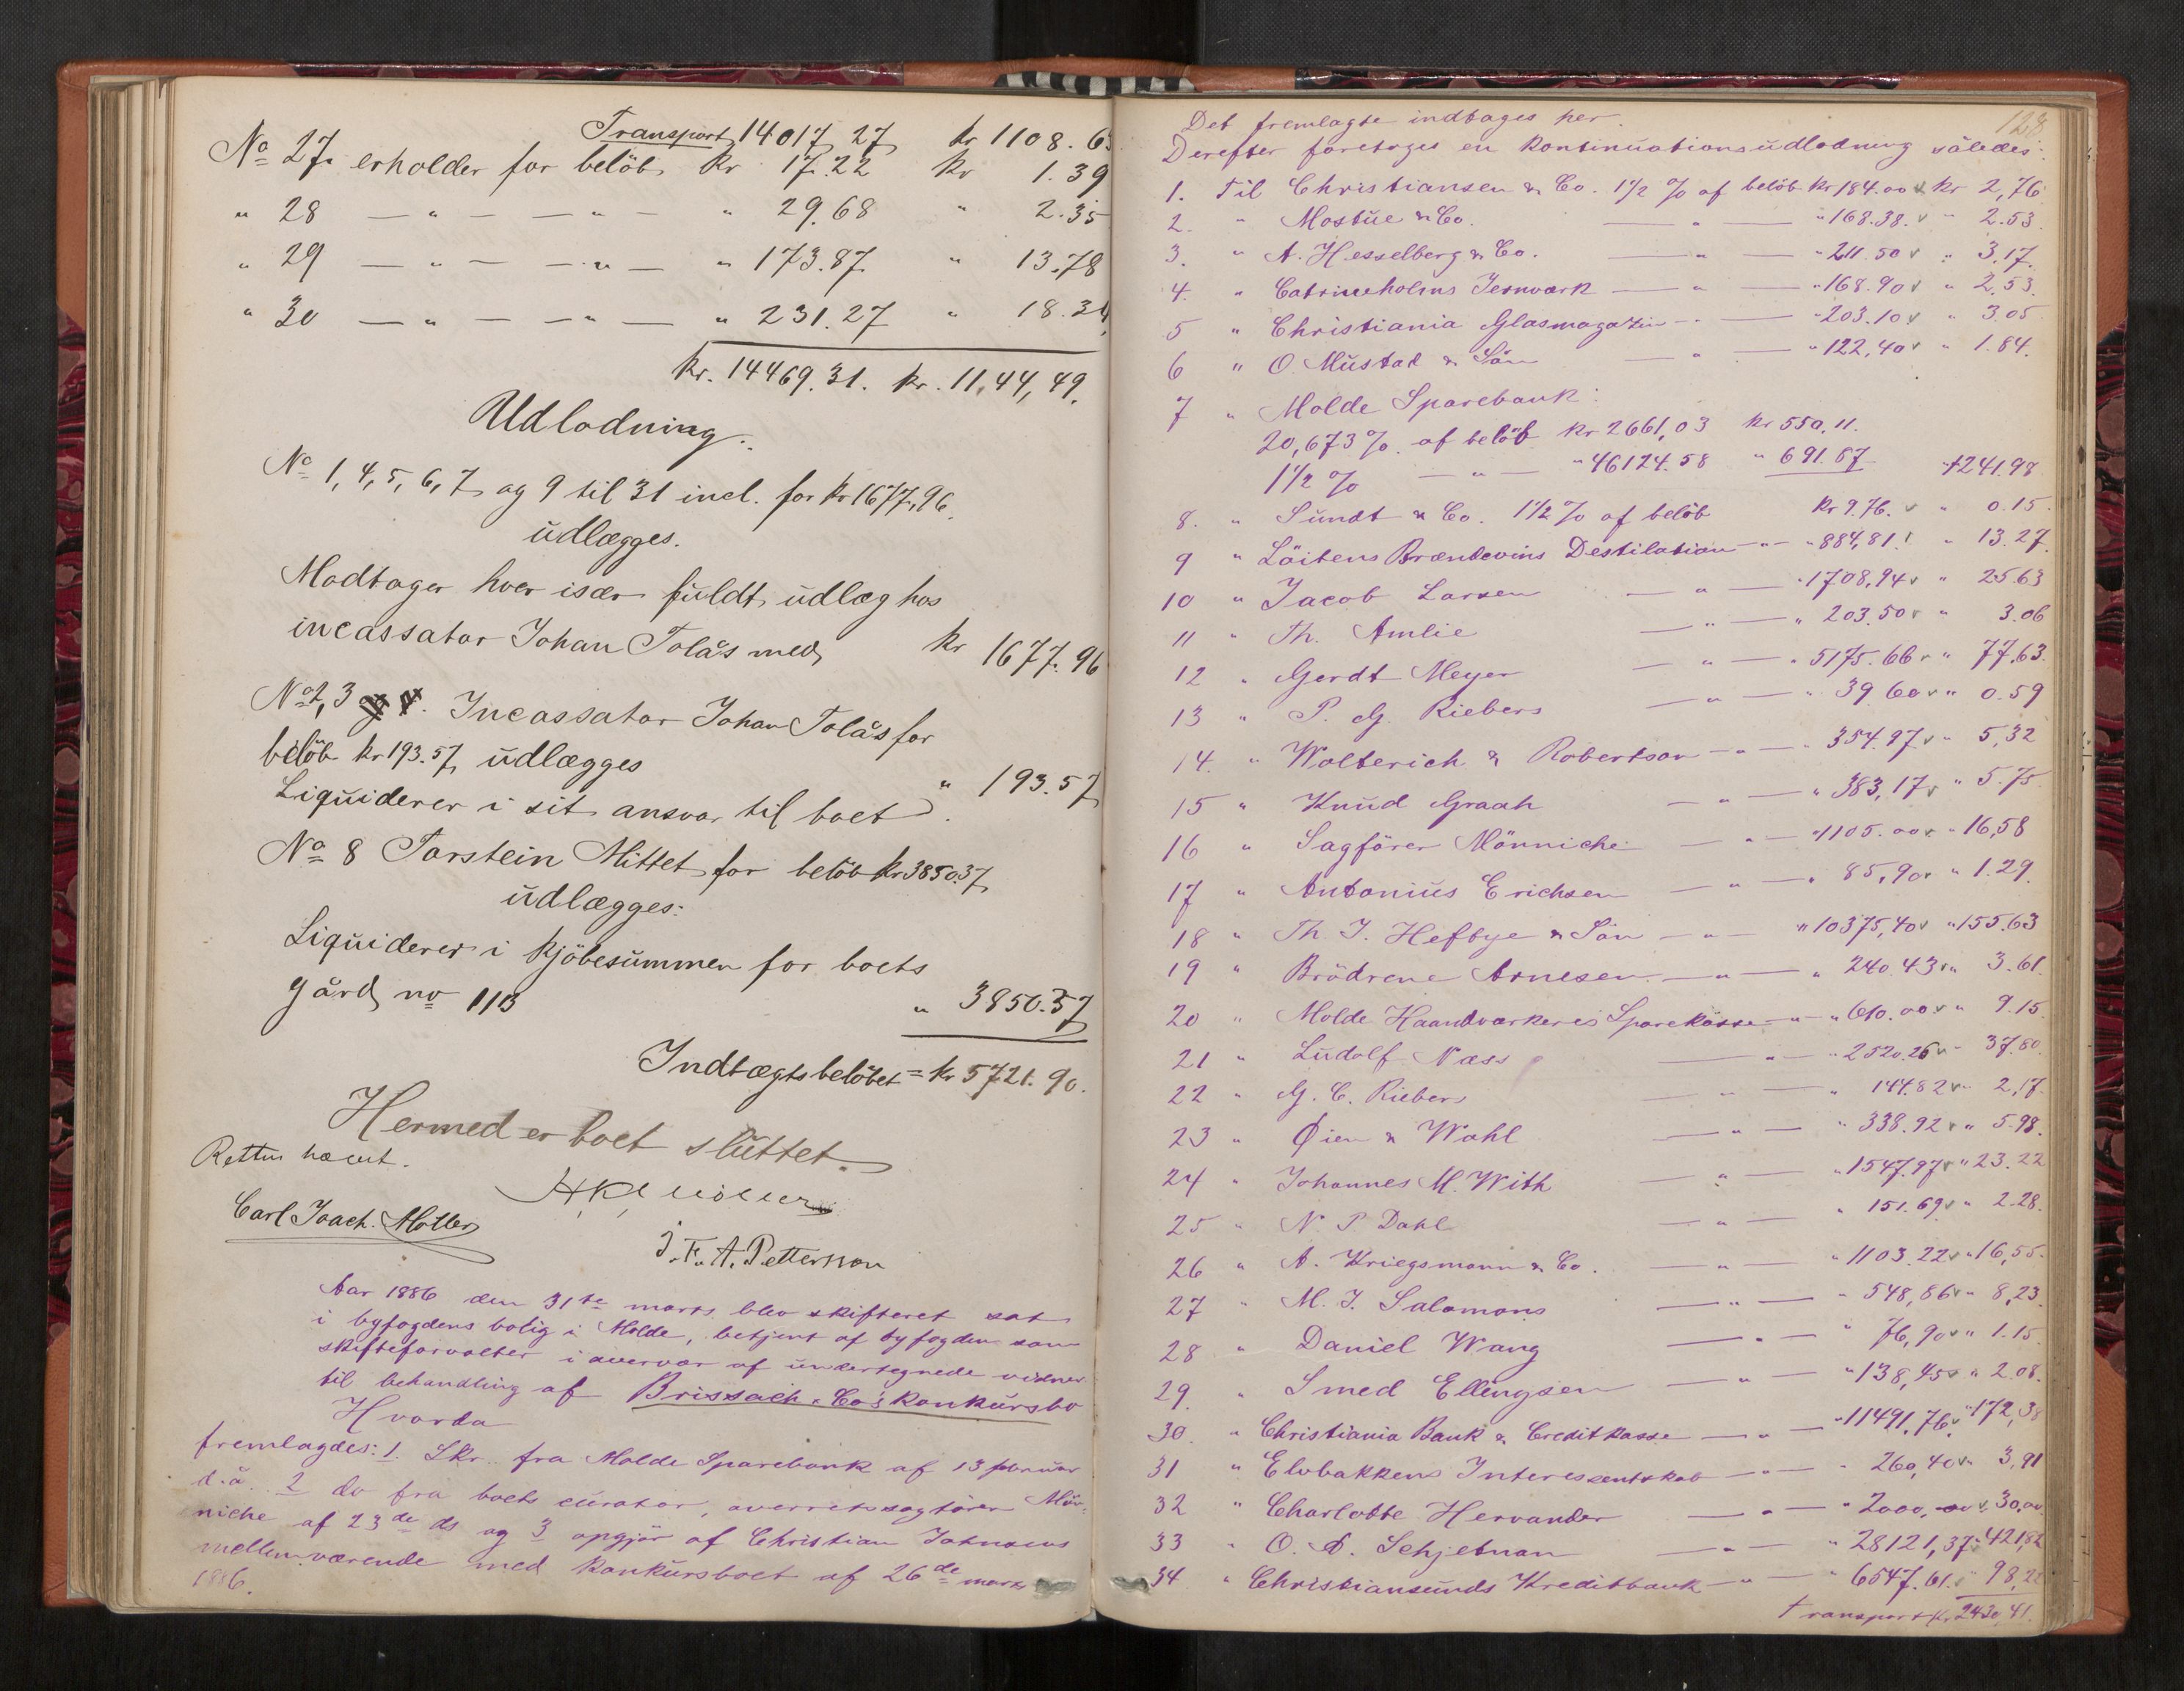 Transport 14017 27 kr 1108.6
No 27. erholder for belöb kr 17.22 kr 1.39
" 28 — " — — " — " 29.68 " 2.35
" 29 — " — — " — " 173.87 " 13.78
" 30 — " — — " — " 231.27 " 18.34
kr. 14469.31. kr. 11,44,49.
Udlodning.
No 1, 4, 5, 6, 7 og 9 til 31 incl. for kr 1677,96.
udlægges.
Modtager hver især fuldt udlæg hos
incassator Johan Tolås med kr 1677.96
No 2, 3 og 4. Incassator Johan Tolås for
belöb kr 193.57 udlægges
Liquiderer i sit ansvar til boet " 193.57
No 8 Torstein Mittet for belöb kr 3850.37
udlægges:
Liquiderer i kjöbesummen for boets
gård no 113 " 3850.37
Indtægtsbelöbet = kr 5721.90.
Hermed er boet sluttet.
Retten hævet.
Carl Joach. Møller
J. F. A. Pettersson
Aar 1886 den 31te marts blev skifteret sat
i byfogdens bolig i Molde, betjent af byfogden som
skifteforvalter i overvær af undertegnede vidner
til behandling af Brissach & Co's konkursbo
Hvorda
fremlagdes: 1. Skr. fra Molde Sparebank af 13 februar
d.å. 2 do fra boets curator, overretssagförer Mön-
niche af 23de ds og 3 opgjör af Christian Johnsens
mellemværende med konkursboet af 26de marts
1886.
128
Det fremlagte indtages her.
Derefter foretoges en kontinuationsudlodning således:
1. Til Christiansen & Co. 1 1/2 % af belöb kr 184.00 kr 2,76
2. " Mostue & Co. — " — " 168.38. " 2.53.
3. " A. Hesselberg & Co. — " — " 211.50 " 3.17.
4. " Catrineholms Jernværk — " — " 168.90 " 2.53.
5 " Christiania Glasmagazin — " — " 203.10 " 3.05
6 " O. Mustad & Sön — " — " 122,40 " 1.84.
7 " Molde Sparebank:
20,673 % af belöb kr 2661,03 kr 550.11.
1 1/2 % — " — " 46124.58 " 691.87 1241.98
8. " Sundt & Co. 1 1/2 % af belöb kr 9.76. " 0.15.
9 " Löitens Brændevins Destilation — " — " 884,81 " 13.27.
10 " Jacob Larsen — " — " 1708,94 " 25.63
11 " Th. Amlie — " — " 203.50 " 3.06
12 " Gerdt Meyer — " — " 5175.66 " 77,63.
13 " P. G. Riebers — " — " 39.60 " 0.59
14. " Wolterich & Robertson — " — " 354.97 " 5,32
15 " Knud Graah — " — " 383,17 " 5.75
16 " Sagförer Mönniche — " — " 1105.00 " 16,58
17 " Antonius Erichsen — " — " 85,90 " 1.29.
18 " Th. J. Heftye & Sön — " — " 10375,40 " 155.63
19 " Brödrene Arnesen — " — " 240.43 " 3.61.
20 " Molde Haandværkeres Sparekasse — " — " 610.00 " 9.15.
21 " Ludolf Næss — " — " 2520.26 " 37.80.
22 " G. C. Riebers — " — " 144.82 " 2,17.
23 " Øien & Wahl — " — " 338.92 " 5.98.
24 " Johannes M. With — " — " 1547.97 " 23.22
25 " N. P. Dahl — " — " 151.69 " 2.28.
26 " A. Kriegsmann & Co. — " — " 1103.22 " 16,55.
27 " M. J. Salomons — " — " 548,86 " 8,23.
28 " Daniel Wang — " — " 76,90 " 1.15.
29. " Smed Ellingsen — " — " 138,45 " 2.08.
30. " Christiania Bank & Creditkasse — " — " 11491.76 " 172,38
31 " Elvbakkens Interessentskab — " — " 260,40 " 3,91
32 " Charlotte Hervander — " — " 2000,00 " 30,00
33 " O. A. Schjetnan — " — " 28121,37 " 421,82
34 " Christiansunds Kreditbank — " — " 6547.61. " 98,22
transport kr. 2430,41.